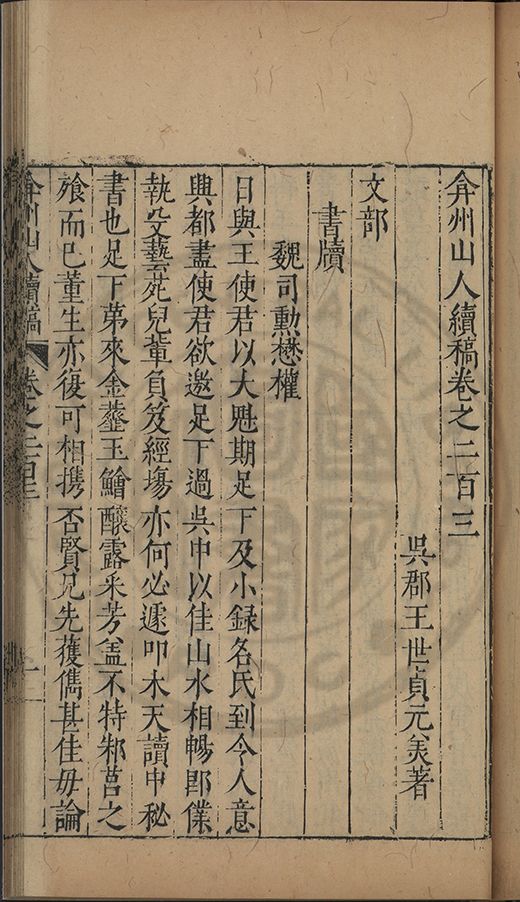 弇州山人續稿卷之二百三
吳郡王世貞元美著
文部
書牘
魏司勳懋權
日與王使君以大魁期足下及小録名氏到令人意
興都盡使君欲邀足下過吳中以佳山水相暢卽僕
執殳藝苑兒輩負笈經塲亦何必遽叩木天讀中秘
書也足下苐來金虀玉鱠釀露采芳盖不特邾莒之
飱而已董生亦復可相携否賢兄先獲雋甚佳毋論
弇州山人續稿 卷之二百三 一